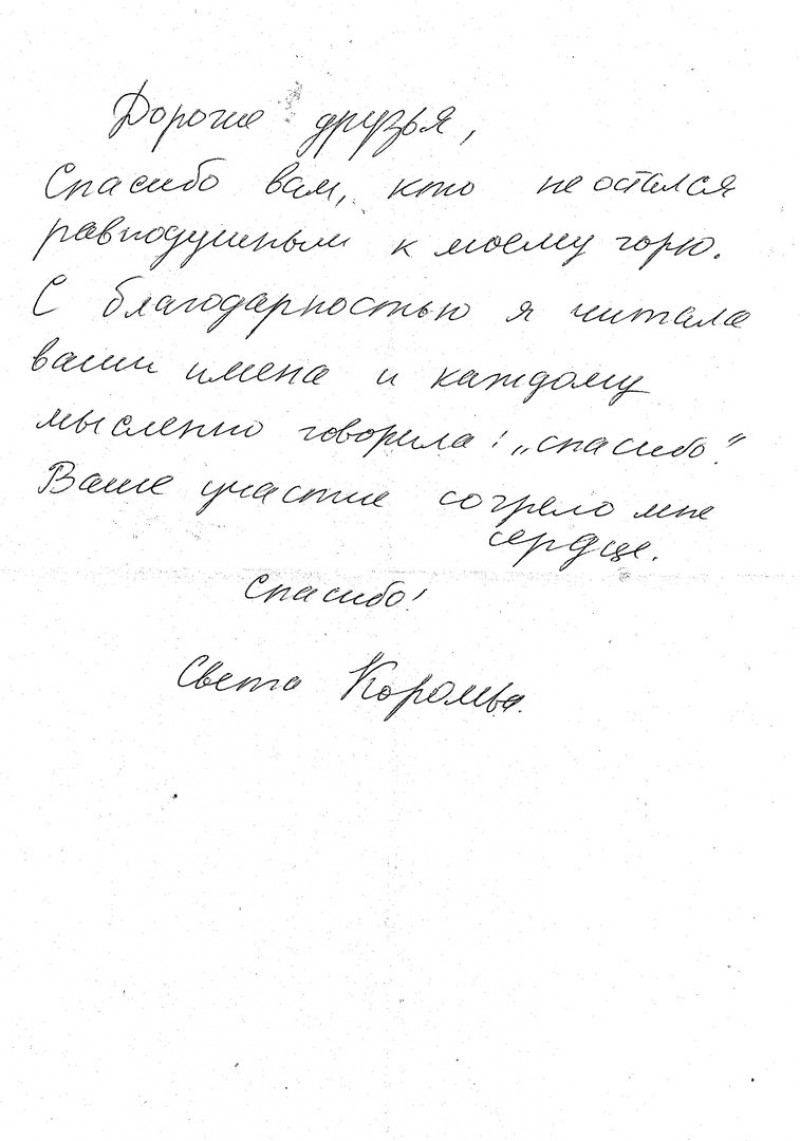 Дорогие друзья,
Спасибо вам, кто не остался
равнодушным к моему горю.
С благодарностью я читала
ваши имена и каждому
мысленно говорила: „спасибо".
Ваше участие согрело мне
сердце.
Спасибо!
Света